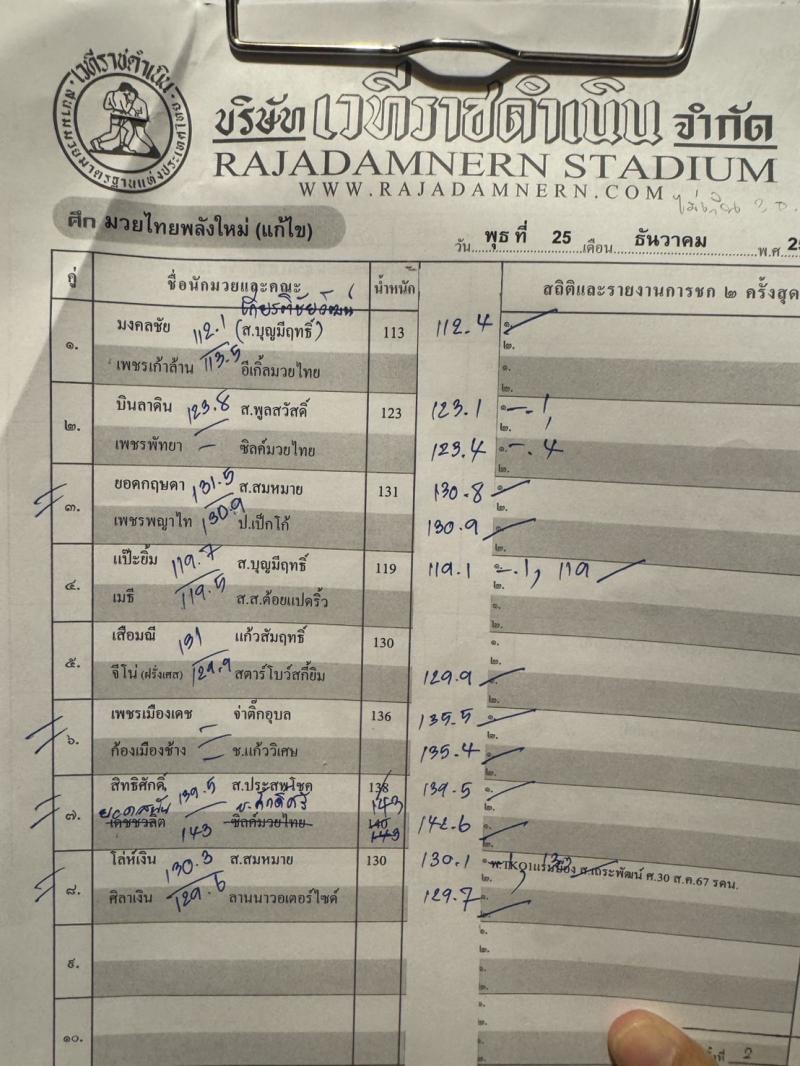 เวทีราชดำเนิน
สนามมวยมาตรฐานแห่งประเทศไทย
บริษัท เวทีราชดำเนิน จำกัด
RAJADAMNERN STADIUM
WWW.RAJADAMNERN.COM
ศึก มวยไทยพลังใหม่ (แก้ไข)
วัน พุธ ที่ 25 เดือน ธันวาคม พ.ศ
คู่ ชื่อนักมวยและคณะ น้ำหนัก สถิติและรายงานการชก ๒ ครั้งสุด
เกียรติชัยวัฒน์
๑. มงคลชัย 112.1 (ส.บุญมีฤทธิ์) 113 112.4 ๑.
๒.
เพชรเก้าล้าน 113.5 อีเกิ้ลมวยไทย ๑.
๒.
๒. บินลาดิน 123.8 ส.พูลสวัสดิ์ 123 123.1 ๑. .1
๒.
เพชรพัทยา – ซิลค์มวยไทย 123.4 ๑. .4
๒.
๓. ยอดกฤษดา 131.5 ส.สมหมาย 131 130.8 ๑.
๒.
เพชรพญาไท 130.9 ป.เป็กโก้ 130.9 ๑.
๒.
๔. แป๊ะยิ้ม 119.7 ส.บุญมีฤทธิ์ 119 119.1 ๑. .1, 119
๒.
เมธี 119.5 ส.ส.ต้อยแปดริ้ว ๑.
๒.
๕. เสือมณี 131 แก้วสัมฤทธิ์ 130 ๑.
๒.
จีโน่ (ฝรั่งเศส) 129.9 สตาร์โบว์สกี้ยิม 129.9 ๑.
๒.
๖. เพชรเมืองเดช จ่าติ๊กอุบล 136 135.5 ๑.
๒.
ก้องเมืองช้าง ช.แก้ววิเศษ 135.4 ๑.
๒.
๗. สิทธิศักดิ์ 139.5 ส.ประสพโชค 138 143 139.5 ๑.
๒.
เดชชวลิต 143 ซิลค์มวยไทย 140 143 142.6 ๑.
๒.
๘. โล่ห์เงิน 130.3 ส.สมหมาย 130 130.1 ๑. .1, 130
๒.
ศ.30 ส.ค.67 รดน.
ศิลาเงิน 129.6 ลานนาวอเตอร์ไซด์ 129.7 ๑.
๒.
๙. ๑.
๒.
๑.
๒.
๑๐. ๑.
๒.
ครั้งที่ 2